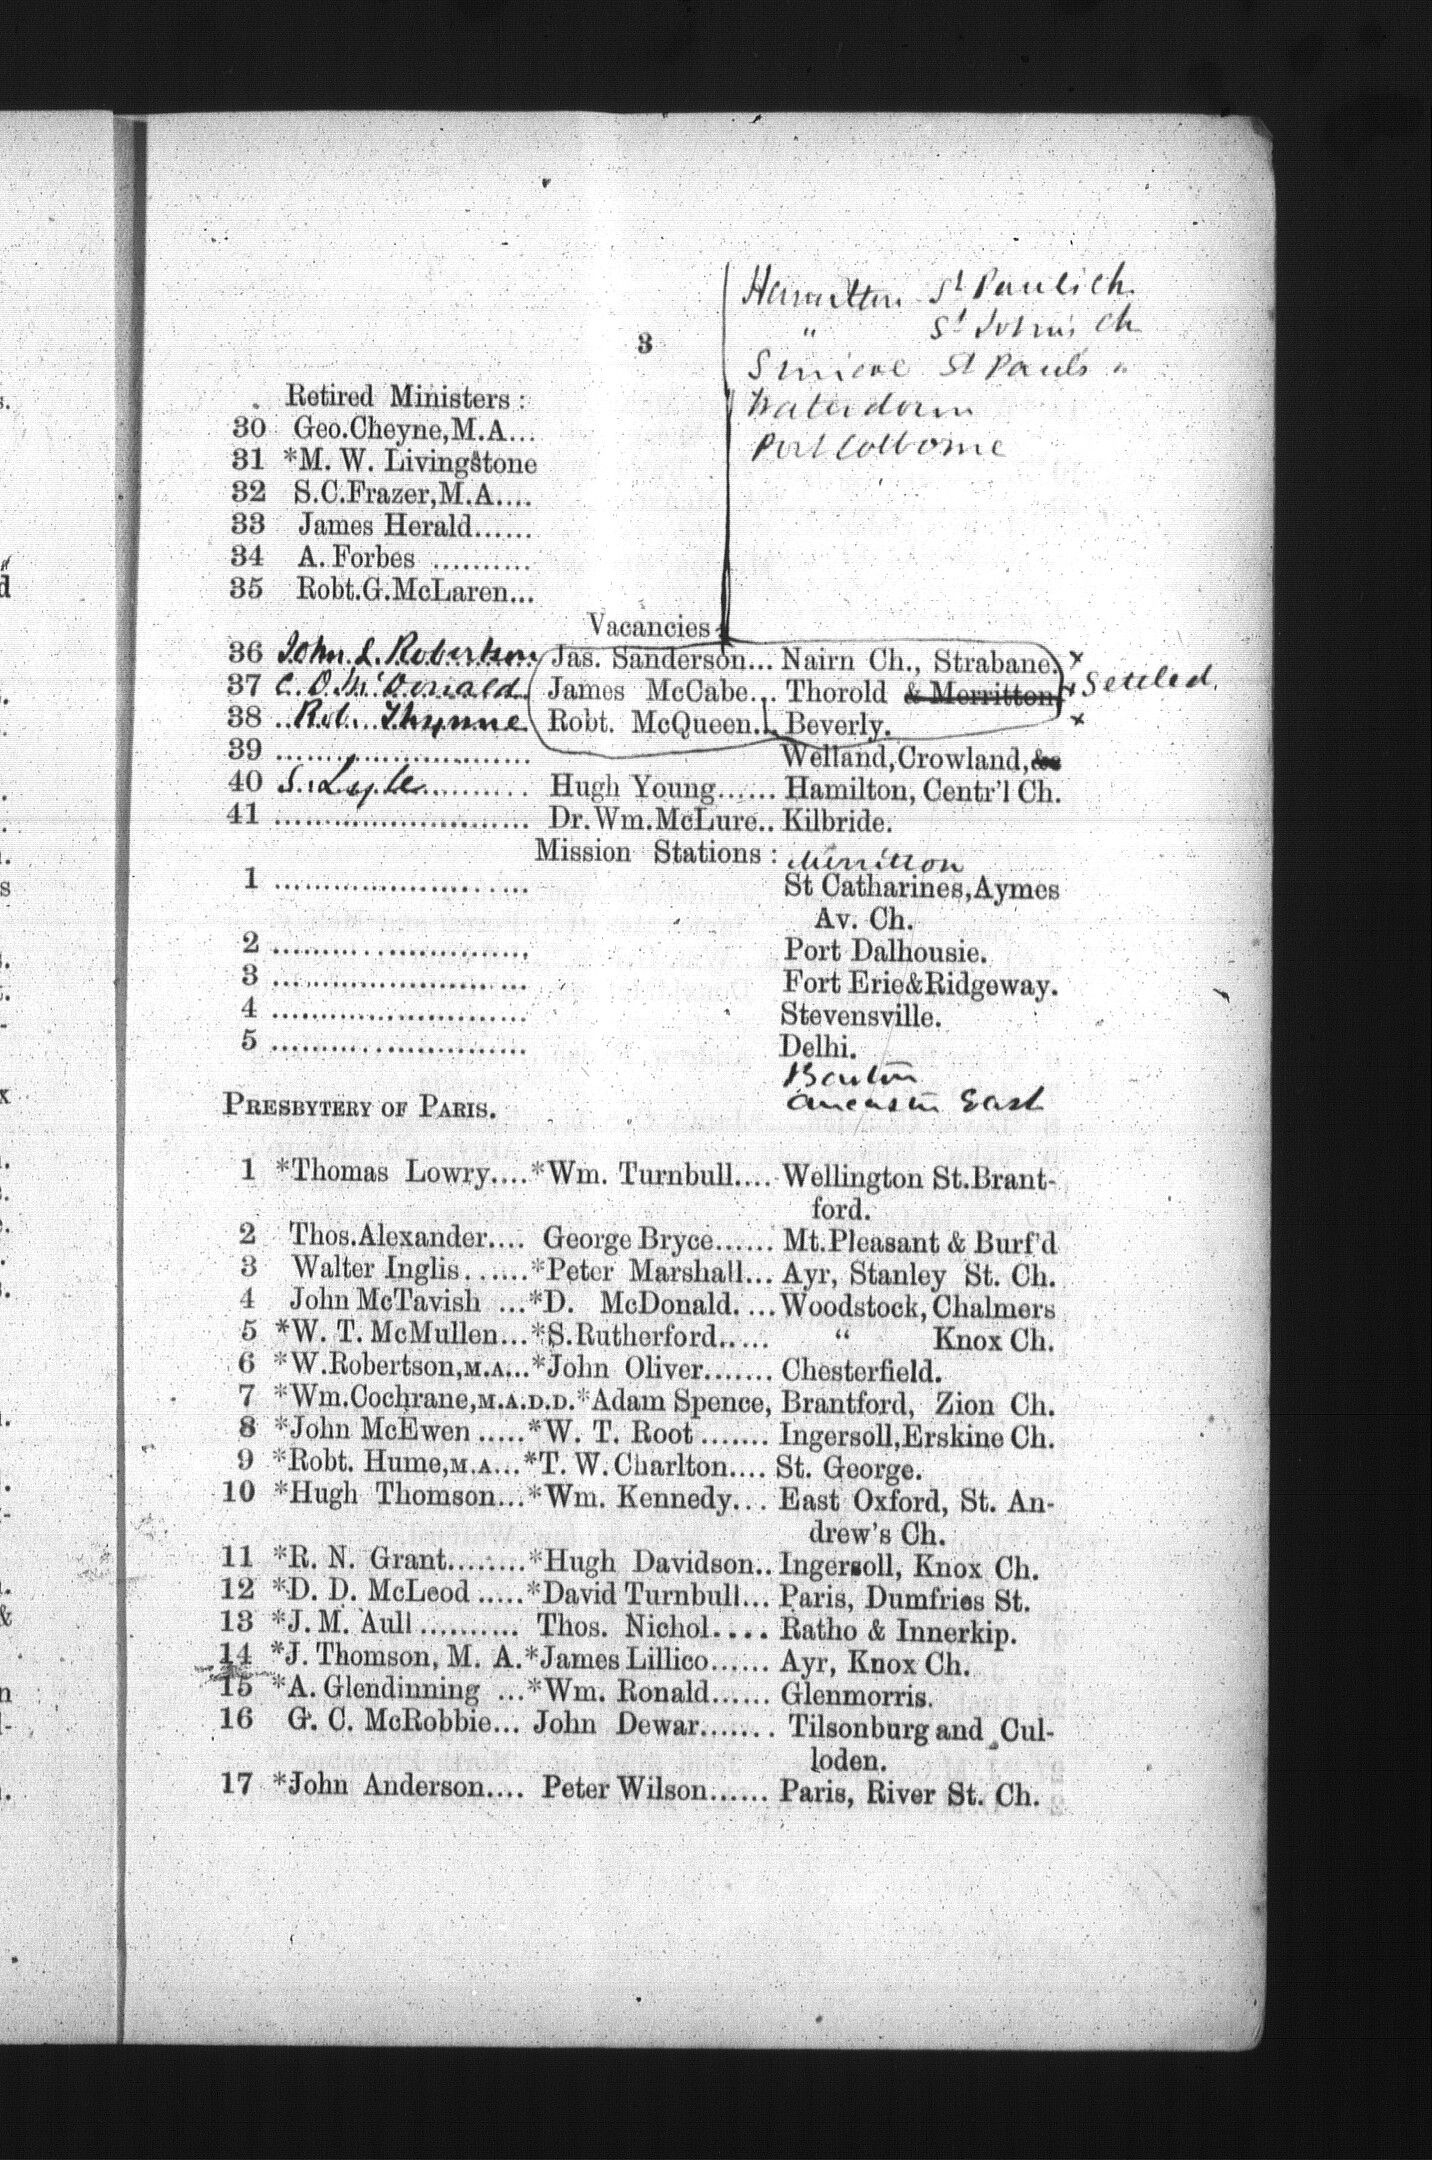 Hamilton St Paul's ch.
" St John's Ch
Simcoe St Pauls "
Waterdown
Port Colborne
3
Retired Ministers :
30 Geo.Cheyne,M.A...
31 *M. W. Livingstone
32 S.C.Frazer,M.A....
33 James Herald......
34 A. Forbes ..........
35 Robt.G.McLaren...
Vacancies :
36 John L. Robertson Jas. Sanderson... Nairn Ch., Strabane. x
37 C. D. McDonald James McCabe... Thorold & Merritton. x Settled.
38 Rob. Thynne Robt. McQueen... Beverly. x
39 .......................... Welland,Crowland,&c
40 S. Lyle.......... Hugh Young...... Hamilton, Centr'l Ch.
41 .......................... Dr. Wm. McLure.. Kilbride.
Mission Stations : Merritton
1 .......................... St Catharines,Aymes
Av. Ch.
2 .......................... Port Dalhousie.
3 .......................... Fort Erie&Ridgeway.
4 .......................... Stevensville.
5 .......................... Delhi.
Barton
Ancaster East
PRESBYTERY OF PARIS.
1 *Thomas Lowry....*Wm. Turnbull.... Wellington St.Brant-
ford.
2 Thos.Alexander.... George Bryce...... Mt.Pleasant & Burf'd
3 Walter Inglis......*Peter Marshall... Ayr, Stanley St. Ch.
4 John McTavish ...*D. McDonald....Woodstock, Chalmers
5 *W. T. McMullen...*S.Rutherford..... " Knox Ch.
6 *W.Robertson,M.A...*John Oliver....... Chesterfield.
7 *Wm.Cochrane,M.A.D.D.*Adam Spence, Brantford, Zion Ch.
8 *John McEwen .....*W. T. Root ....... Ingersoll,Erskine Ch.
9 *Robt. Hume,M.A...*T. W. Charlton.... St. George.
10 *Hugh Thomson...*Wm. Kennedy... East Oxford, St. An-
drew's Ch.
11 *R. N. Grant........*Hugh Davidson.. Ingersoll, Knox Ch.
12 *D. D. McLeod .....*David Turnbull... Paris, Dumfries St.
13 *J. M. Aull .......... Thos. Nichol.... Ratho & Innerkip.
14 *J. Thomson, M. A.*James Lillico...... Ayr, Knox Ch.
15 *A. Glendinning ...*Wm. Ronald...... Glenmorris.
16 G. C. McRobbie... John Dewar....... Tilsonburg and Cul-
loden.
17 *John Anderson.... Peter Wilson...... Paris, River St. Ch.